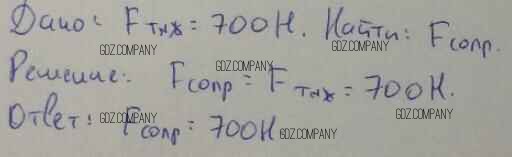 Дано: Fтяж = 700Н. Найти: Fсопр.
GDZ.COMPANY GDZ.COMPANY
GDZ.COMPANY
Решение: Fсопр = Fтяж = 700Н.
GDZ.COMPANY GDZ.COMPANY
Ответ: Fсопр = 700Н
GDZ.COMPANY GDZ.COMPANY